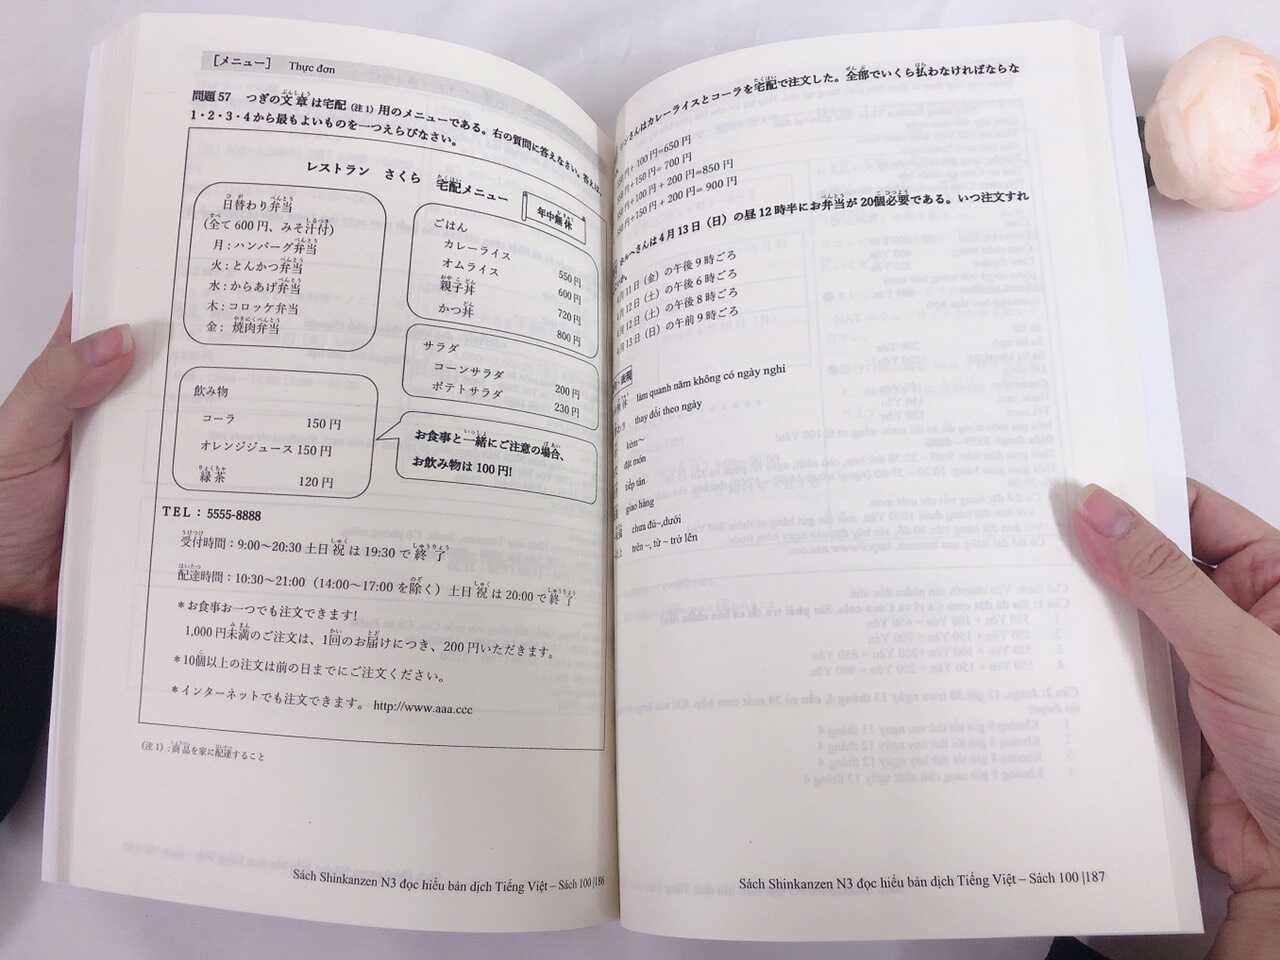 [メニュー] Thực đơn
問題 57 つぎの文章は宅配(注1)用のメニューである。右の質問に答えなさい。答えは、
1・2・3・4から最もよいものを一つえらびなさい。
レストラン さくら 宅配メニュー
年中無休
日替わり弁当
(全て600円、みそ汁付)
月:ハンバーグ弁当
火:とんかつ弁当
水:からあげ弁当
木:コロッケ弁当
金:焼肉弁当
ごはん
カレーライス 550円
オムライス 600円
親子丼 720円
かつ丼 800円
サラダ
コーンサラダ 200円
ポテトサラダ 230円
飲み物
コーラ 150円
オレンジジュース 150円
緑茶 120円
お食事と一緒にご注意の場合、
お飲み物は100円!
TEL:5555-8888
受付時間:9:00～20:30 土日祝は19:30で終了
配達時間:10:30～21:00(14:00～17:00を除く)土日祝は20:00で終了
*お食事お一つでも注文できます!
1,000円未満のご注文は、1回のお届けにつき、200円いただきます。
*10個以上の注文は前の日までにご注文ください。
*インターネットでも注文できます。http://www.aaa.ccc
(注1):商品を家に配達すること
Sách Shinkanzen N3 đọc hiểu bản dịch Tiếng Việt – Sách 100 |186
さんはカレーライスとコーラを宅配で注文した。全部でいくら払わなければならな
円+100円=650円
円+150円=700円
円+100円+200円=850円
円+150円+200円=900円
さんは4月13日(日)の昼12時半にお弁当が20個必要である。いつ注文すれ
4月11日(金)の午後9時ごろ
4月12日(土)の午後6時ごろ
4月12日(土)の午後8時ごろ
4月13日(日)の午前9時ごろ
làm quanh năm không có ngày nghỉ
thay đổi theo ngày
kèm~
đặt món
tiếp tân
giao hàng
chưa đủ~,dưới
trên ~, từ ~ trở lên
Sách Shinkanzen N3 đọc hiểu bản dịch Tiếng Việt – Sách 100 |187